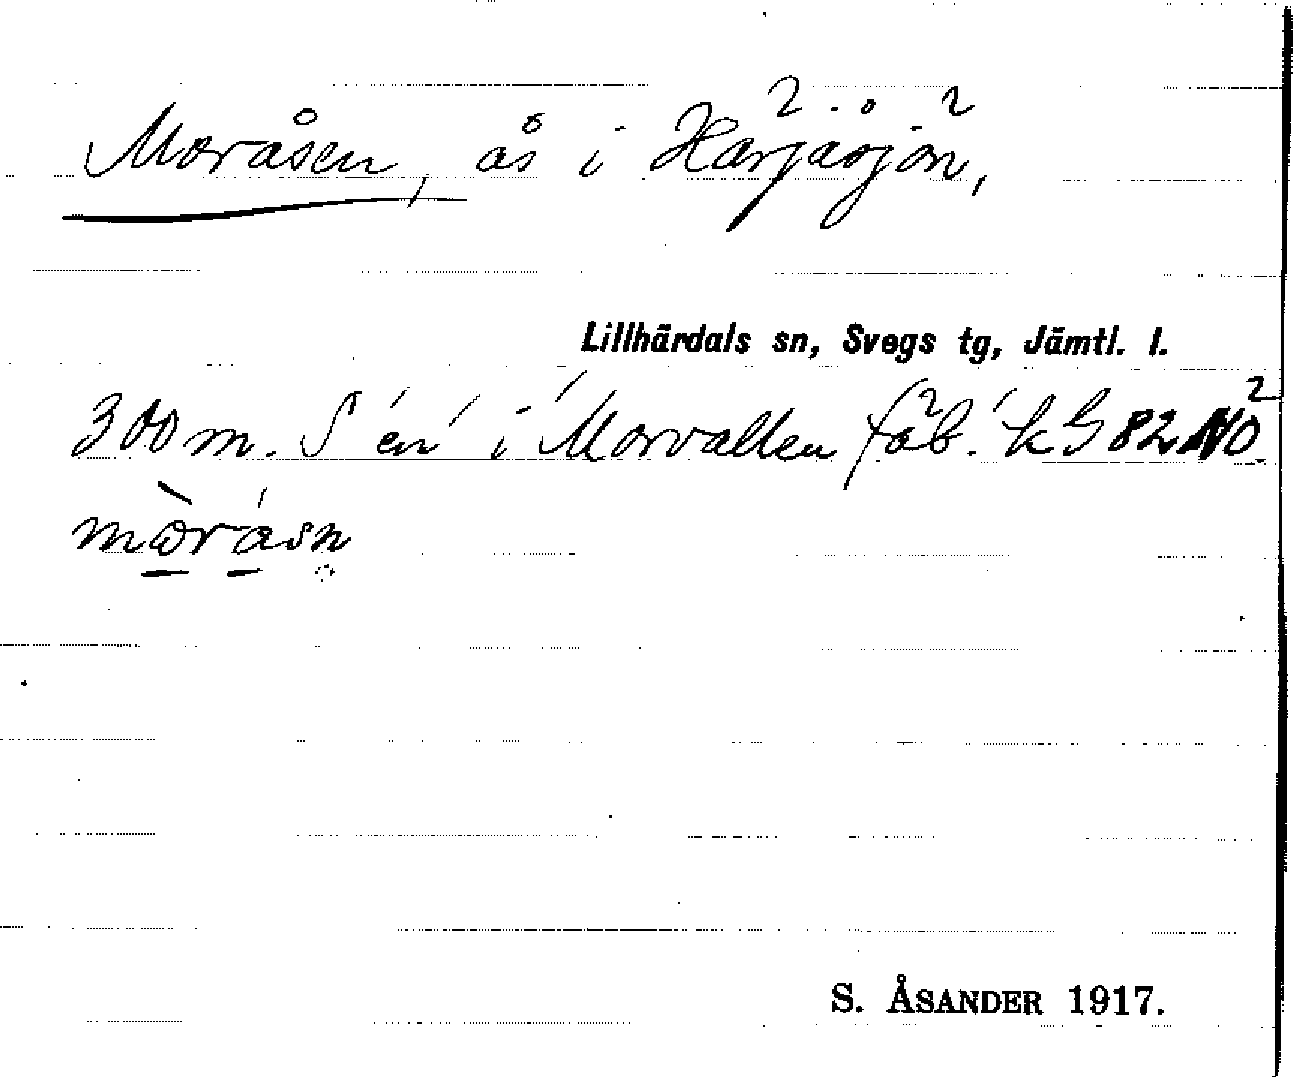 Moråsen, ås i Härjåsjön,
Lillhärdals sn, Svegs tg, Jämtl. l.
300 m. S "en" i "Morvallen fäb." k G 82 NÖ.
mòrásn
S. ÅSANDER 1917.